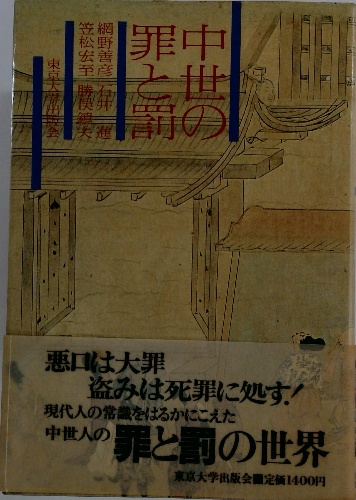 中世の
罪と罰
網野善彦 石井 進
笠松宏至 勝俣鎭夫
東京大学出版会
悪口は大罪
盗みは死罪に処す!
現代人の常識をはるかにこえた
中世人の罪と罰の世界
東京大学出版会■定価1400円